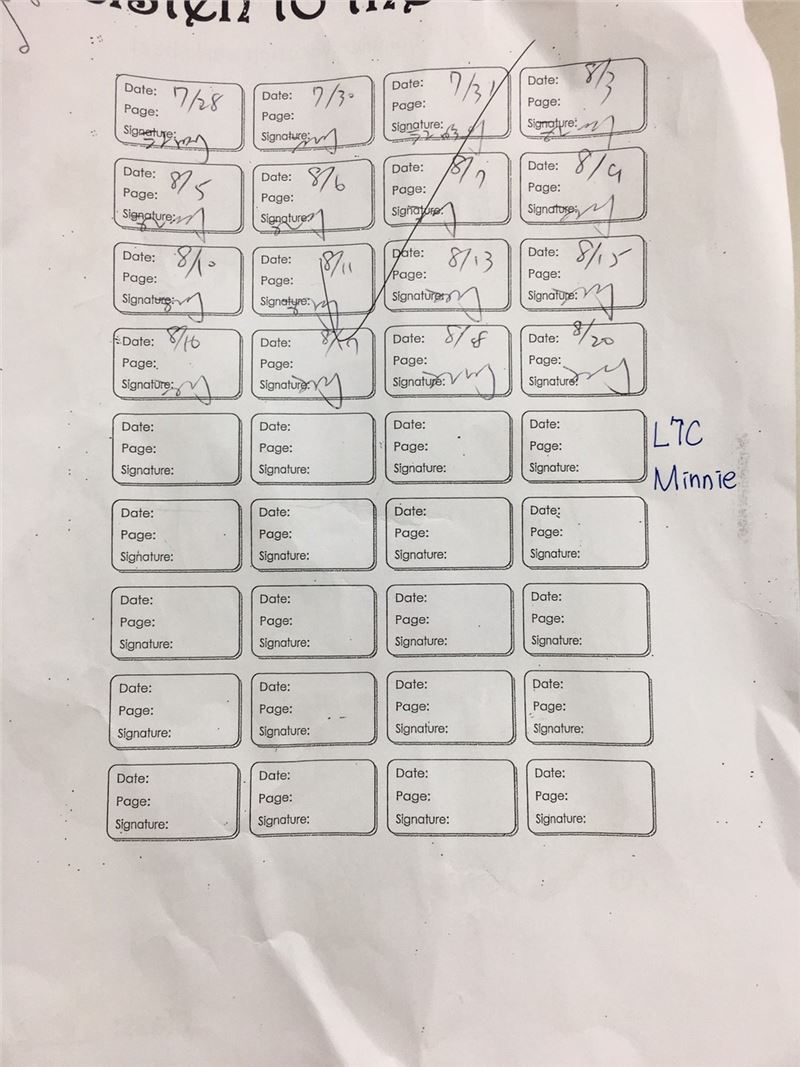 Listen to the
Date: 7/28
Page:
Signature:
Date: 7/30
Page:
Signature:
Date: 7/31
Page:
Signature:
Date: 8/3
Page:
Signature:
Date: 8/5
Page:
Signature:
Date: 8/6
Page:
Signature:
Date: 8/7
Page:
Signature:
Date: 8/9
Page:
Signature:
Date: 8/10
Page:
Signature:
Date: 8/11
Page:
Signature:
Date: 8/13
Page:
Signature:
Date: 8/15
Page:
Signature:
Date: 8/16
Page:
Signature:
Date: 8/17
Page:
Signature:
Date: 8/18
Page:
Signature:
Date: 8/20
Page:
Signature:
Date:
Page:
Signature:
Date:
Page:
Signature:
Date:
Page:
Signature:
Date:
Page:
Signature:
L7C
Minnie
Date:
Page:
Signature:
Date:
Page:
Signature:
Date:
Page:
Signature:
Date:
Page:
Signature:
Date:
Page:
Signature:
Date:
Page:
Signature:
Date:
Page:
Signature:
Date:
Page:
Signature:
Date:
Page:
Signature:
Date:
Page:
Signature:
Date:
Page:
Signature:
Date:
Page:
Signature:
Date:
Page:
Signature:
Date:
Page:
Signature:
Date:
Page:
Signature:
Date:
Page:
Signature: